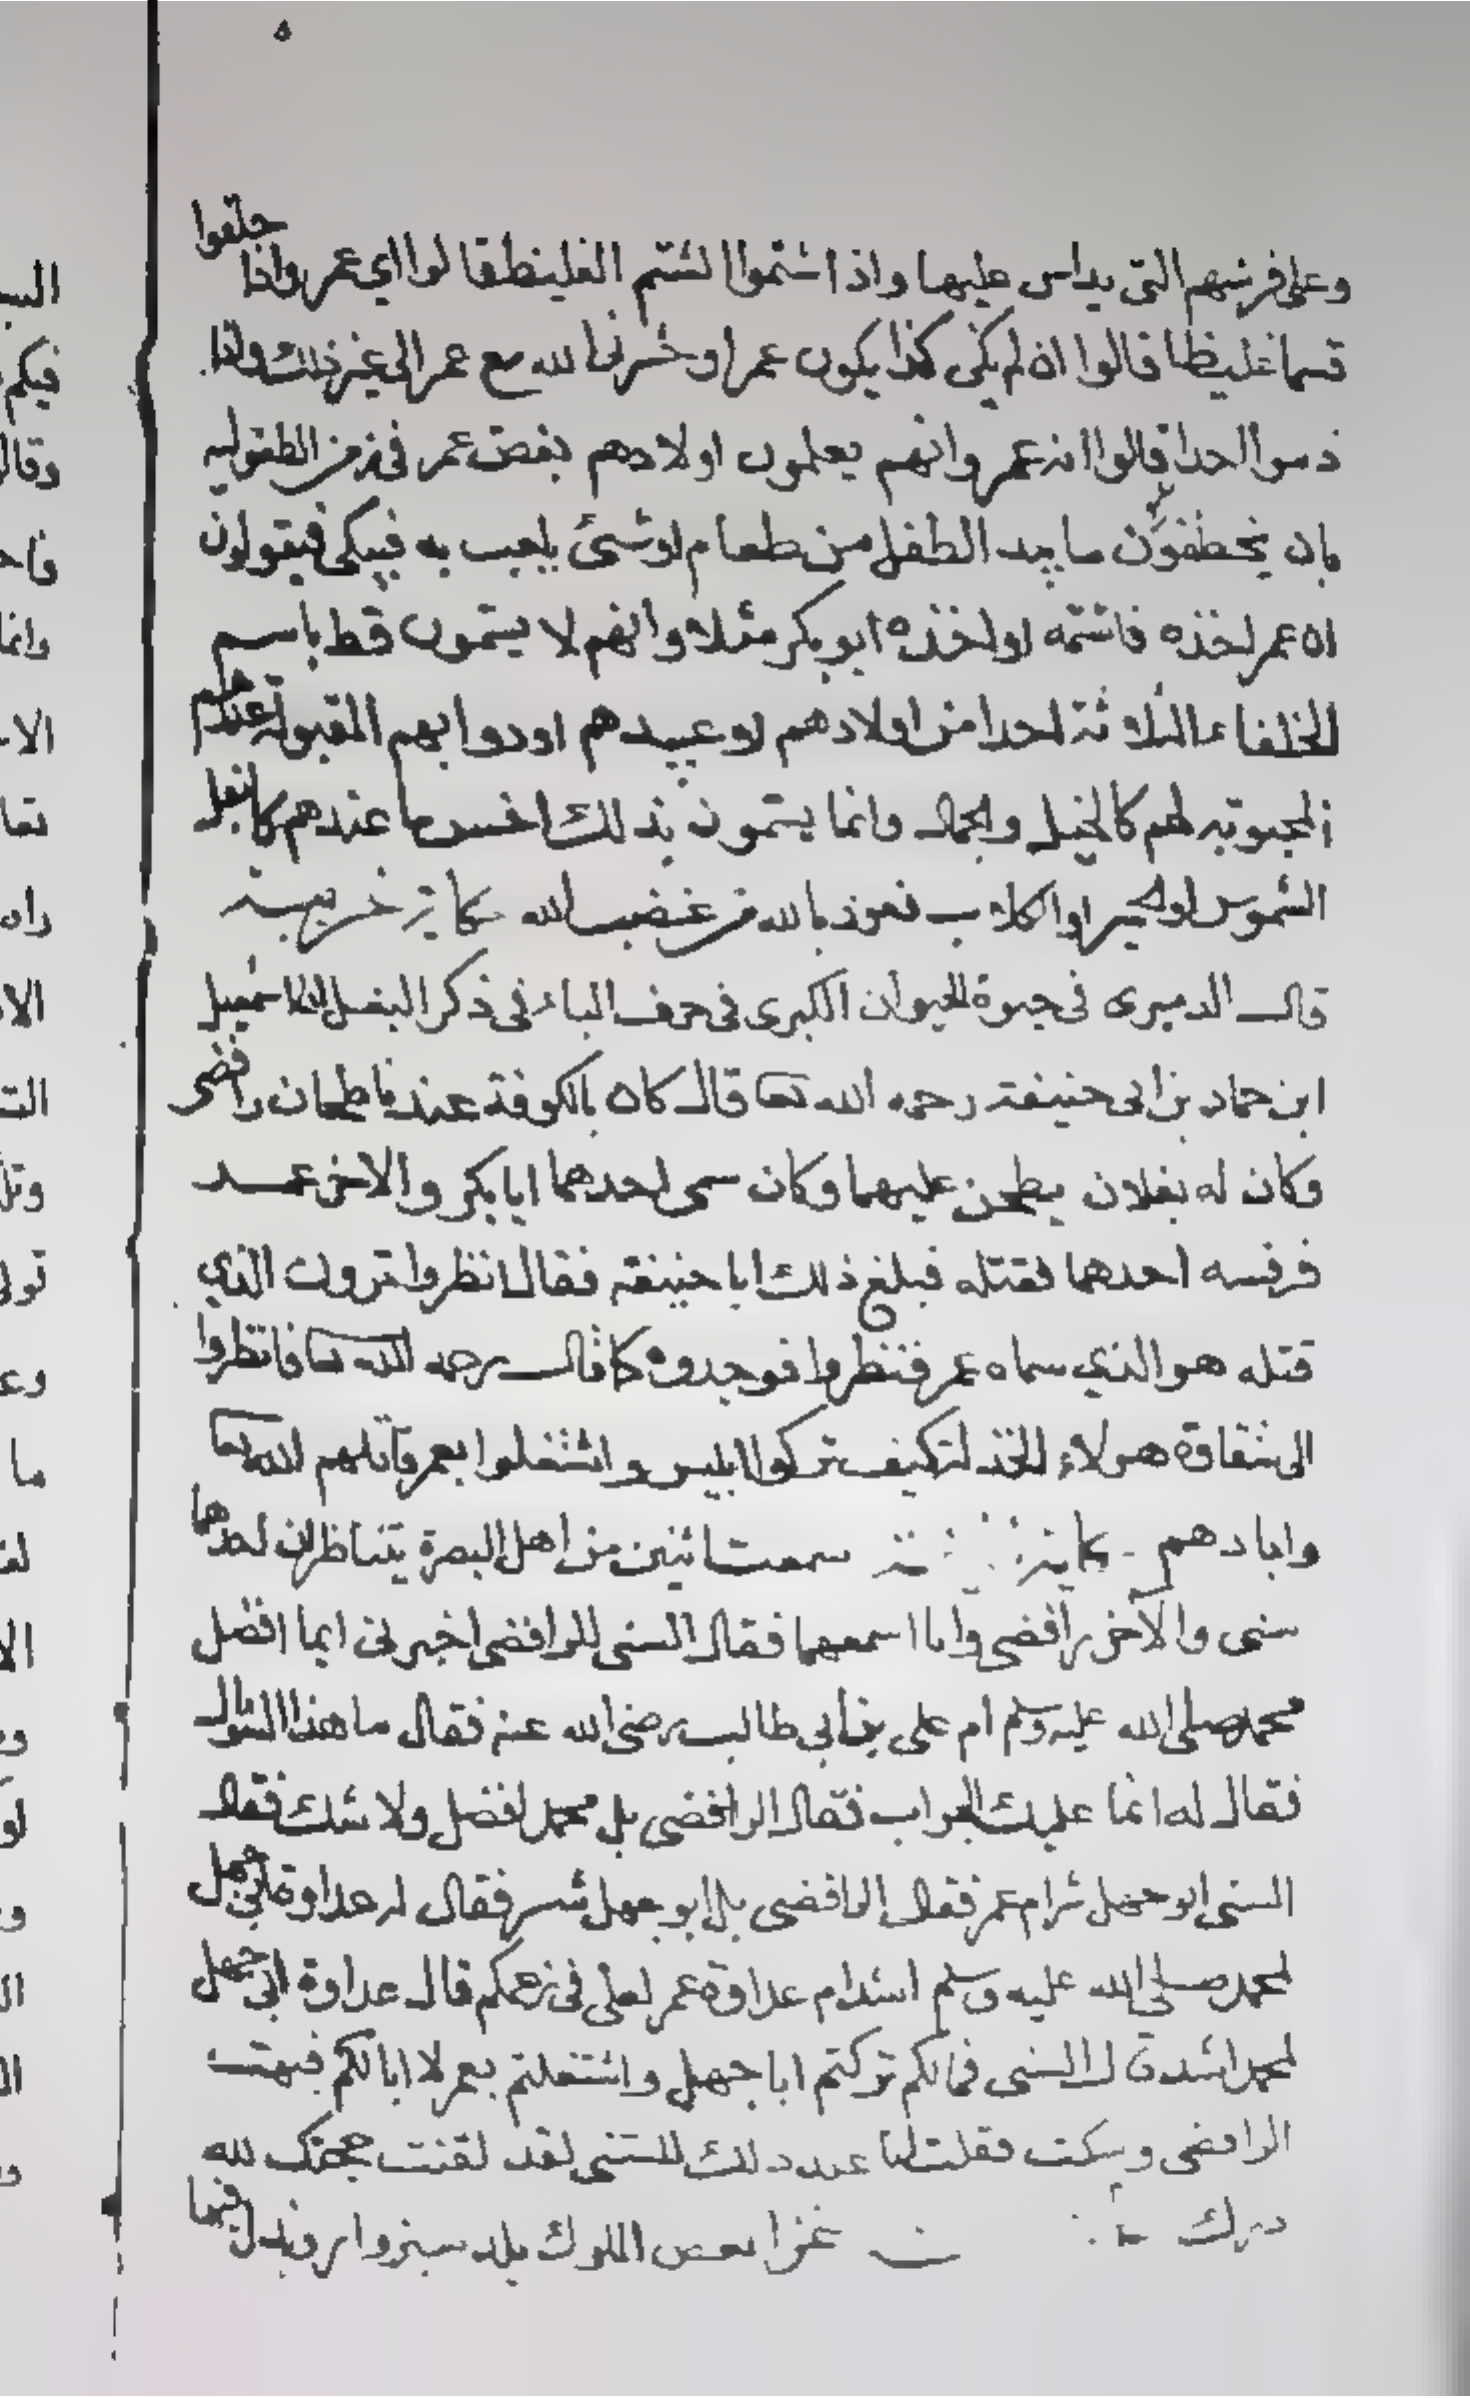 ٥
وعلى فرشهم التى يداس عليها واذا اشتموا الشتم الغليظ قالوا اي عمر واذا حلفوا
قسما غليظا قالوا ان لم يكن كذا يكون عمر او حشرنا الله مع عمر الى غير ذلك واذا
ذموا احدا قالوا انه عمر وانهم يعلمون اولادهم بغض عمر في زمن الطفوليه
بان يخطفون ما بيد الطفل من طعام او شئ يلعب به فيبكى فيقولون
ان عمر اخذه فاشتمه او اخذه ابو بكر مثلا وانهم لا يسمون قط باسم
الخلفاء الثلاثة احدا من اولادهم او عبيدهم او دوابهم المقبولة عندهم
المحبوبة لهم كالخيل والجمال وانما يسمون بذلك اخس ما عندهم كالبغل
الشموس او الحمير او الكلاب نعوذ بالله من غضب الله حكاية غريبة
قال الدميرى فى حيوة الحيوان الكبرى فى حرف الباء فى ذكر البغل اسمعيل
ابن حماد بن ابى حنيفة رحمه الله تعا قال كان بالكوفة عندنا طحان رافضى
وكان له بغلان يطحن عليهما وكان سمى احدهما ابا بكر والاخر عمر
فرفسه احدهما فقتله فبلغ ذلك ابا حنيفة فقال انظروا ترون الذي
قتله هو الذي سماه عمر فنظروا فوجدوه كما قال رحمه الله تعا فانظروا
الى شقاوة هولاء كيف تركوا ابليس واشتغلوا بعمر قاتلهم الله تعا
وابادهم حكاية سمعت اثنين من اهل البصرة يتناظران احدهما
سنى والآخر رافضى وانا اسمعهما فقال السنى للرافضى اخبرنى ايما افضل
محمد صلى الله عليه وسلم ام على بن أبي طالب رضى الله عنه فقال ما هذا السؤال
فقال له انما عليك الجواب فقال الرافضى بل محمد افضل ولا شك فقال
السنى ابو جهل شر ام عمر فقال الرافضى بل ابو جهل شر فقال له عداوة ابى جهل
لمحمد صلى الله عليه وسلم اشد ام عداوة عمر لعلى فى زعمكم قال عداوة ابى جهل
لمحمد اشد قال السنى فما لكم تركتم ابا جهل واشتغلتم بعمر لا ابا لكم فبهت
الرافضى وسكت فقلت انا عند ذلك للسنى لقد لقنت حجتك لله
درك غزا بعض الملوك بلد سبزوار وبذل فيها